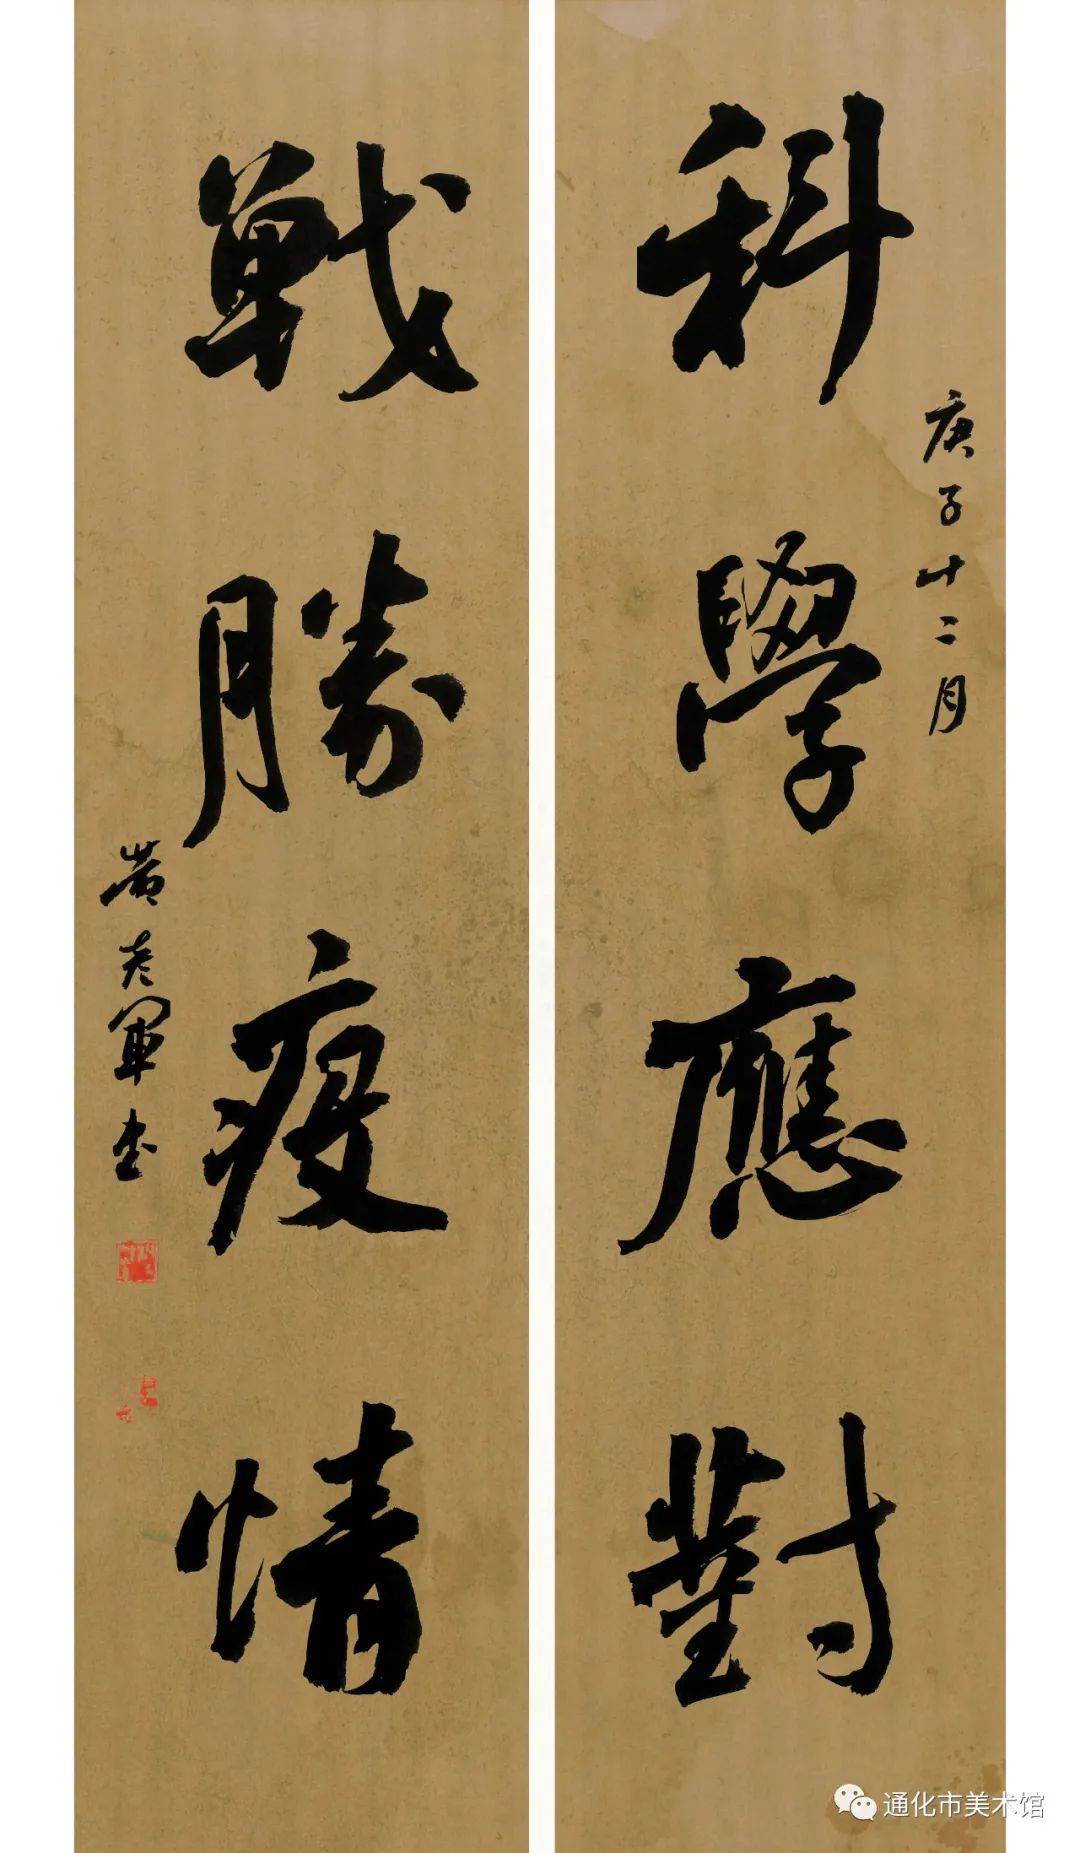 科學應對
庚子十二月
戰勝疫情
黃軍書
通化市美术馆